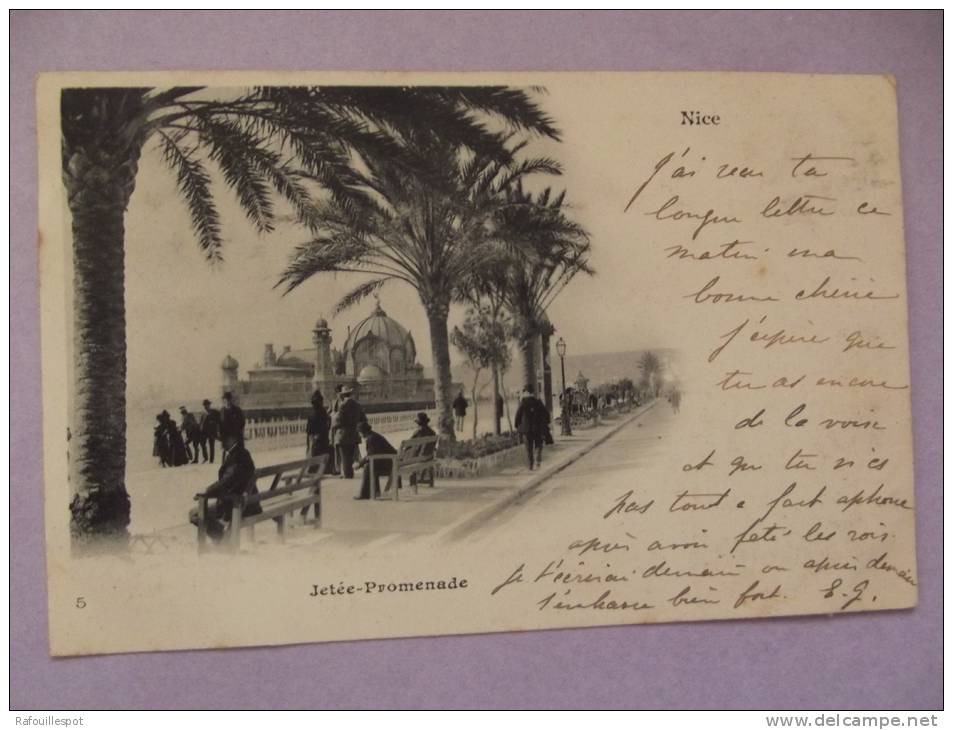 Nice
J'ai reçu ta
longue lettre ce
matin ma
bonne chérie
J'espère que
tu as encore
de la voix
et que tu n'es
pas tout a fait aphone
après avoir fêté les rois.
Je t'écrirai demain ou après demain
t'embrasse bien fort. E. G.
Jetée-Promenade
5
Rafouillespot
www.delcampe.net